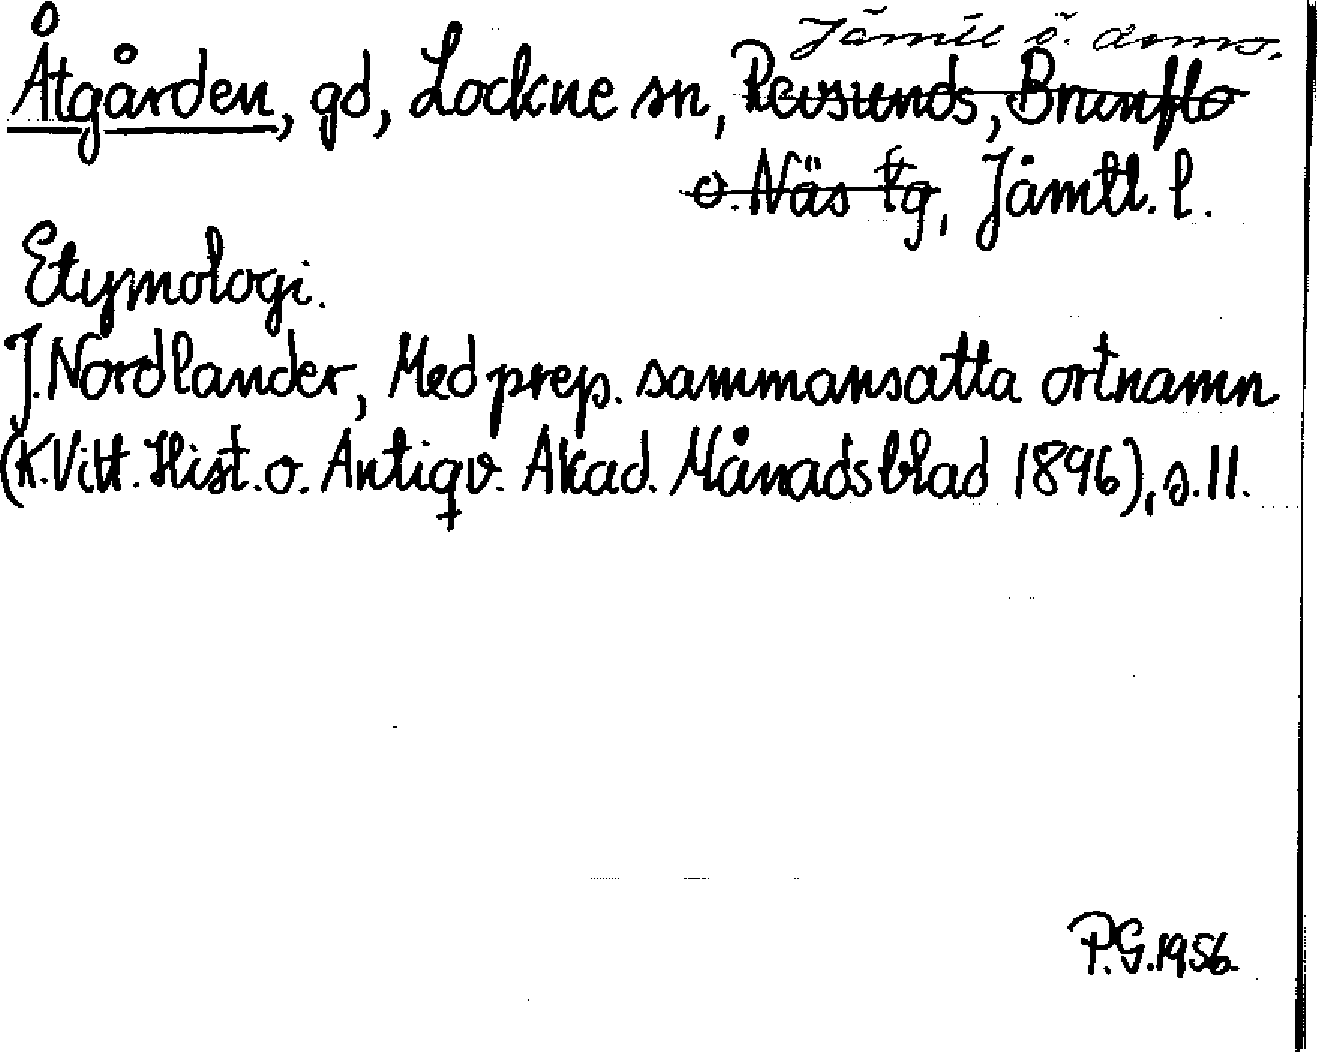 Jämtl ö. doms.
Åtgården, gd, Lockne sn, Revsunds, Brunflo
o. Näs tg, Jämtl. l.
Etymologi.
J. Nordlander, Med prep. sammansatta ortnamn
(K. Vitt. Hist. o. Antiqv. Akad. Månadsblad 1896), s. 11.
P.G. 1956.